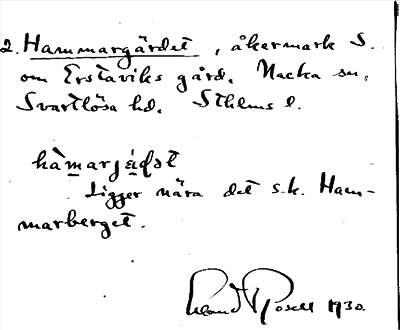 2. Hammargärdet, åkermark S.
om Erstaviks gård. Nacka sn,
Svartlösa hd. Sthlms l.
Ligger nära det s.k. Ham-
marberget.
Rosell 1930.